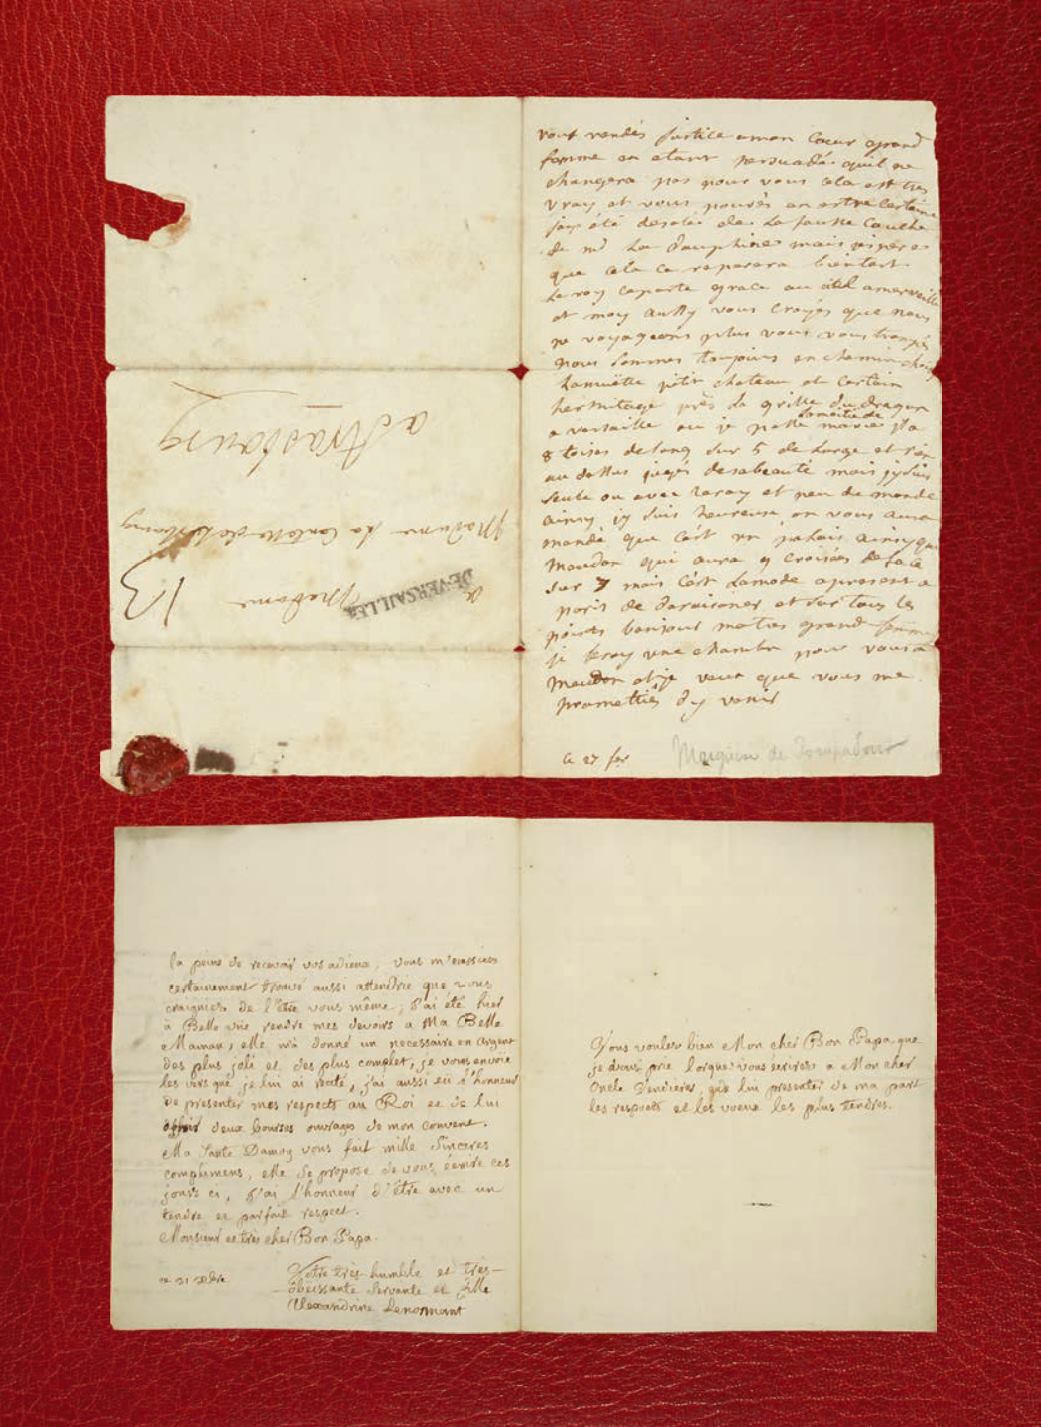 vous rendés justice a mon coeur grand
femme en etant persuadée quil ne
changera pas pour vous cela est tres
vray et vous pouvés en estre certaine
jay été desolée de la fausse couche
de md la dauphine mais jesperes
que cela ce reparera bientost
le roy ce porte grace au ciel a merveille
et moy aussy vous croyés que nous
ne voyageons plus vous vous trompés
nous sommes toujours en chemin choisy
la muëtte petit chateau et certain
hermitage près la grille du dragon
a versaille ou je passe la moitié de ma vie il a
8 toises de long sur 5 de large et rien
au dessus jugés de sa beauté mais jy suis
seule ou avec le roy et peu de monde
ainsy jy suis heureuse on vous aura
mandé que cest un palais ainsy que
meudon qui aura 9 croisées de face
sur 7 mais cest la mode a present a
paris de deraisoner et sur tous les
points bonjour ma tres grand femme
je feray une chambre pour vous a
meudon et je veux que vous me
promettiés dy venir
ce 27 fer
Marquise de Pompadour
a Madame
Madame la Contesse de Lutzelbourg
a Strasbourg
13
DE VERSAILLES
la peine de recevoir vos adieux, vous m'eussiés
certainement trouvé aussi attendrie que vous
craignies de l'être vous même, J'ai été hier
à Belle vüe rendre mes devoirs a Ma Belle
Maman, elle m'a donné un necessaire en Argent
des plus joli et des plus complet, je vous envoie
les vers que je lui ai recité, j'ai aussi eü l'honneur
de presenter mes respects au Roi et de lui
offrir deux bourses ouvrages de mon couvent.
Ma Tante Damoy vous fait mille Sinceres
complimens, elle Se propose de vous écrire ces
jours ci, J'ai l'honneur d'être avec un
tendre et parfait respect.
Monsieur et très cher Bon Papa.
Votre très humble et très
obeissante Servante et fille
Alexandrine Lenormant
ce 31 xbre
Vous voulez bien Mon cher Bon Papa que
je vous prie lorque vous écrirez a Mon cher
Oncle Vendieres, de lui presenter de ma part
les respects et les voeux les plus tendres.